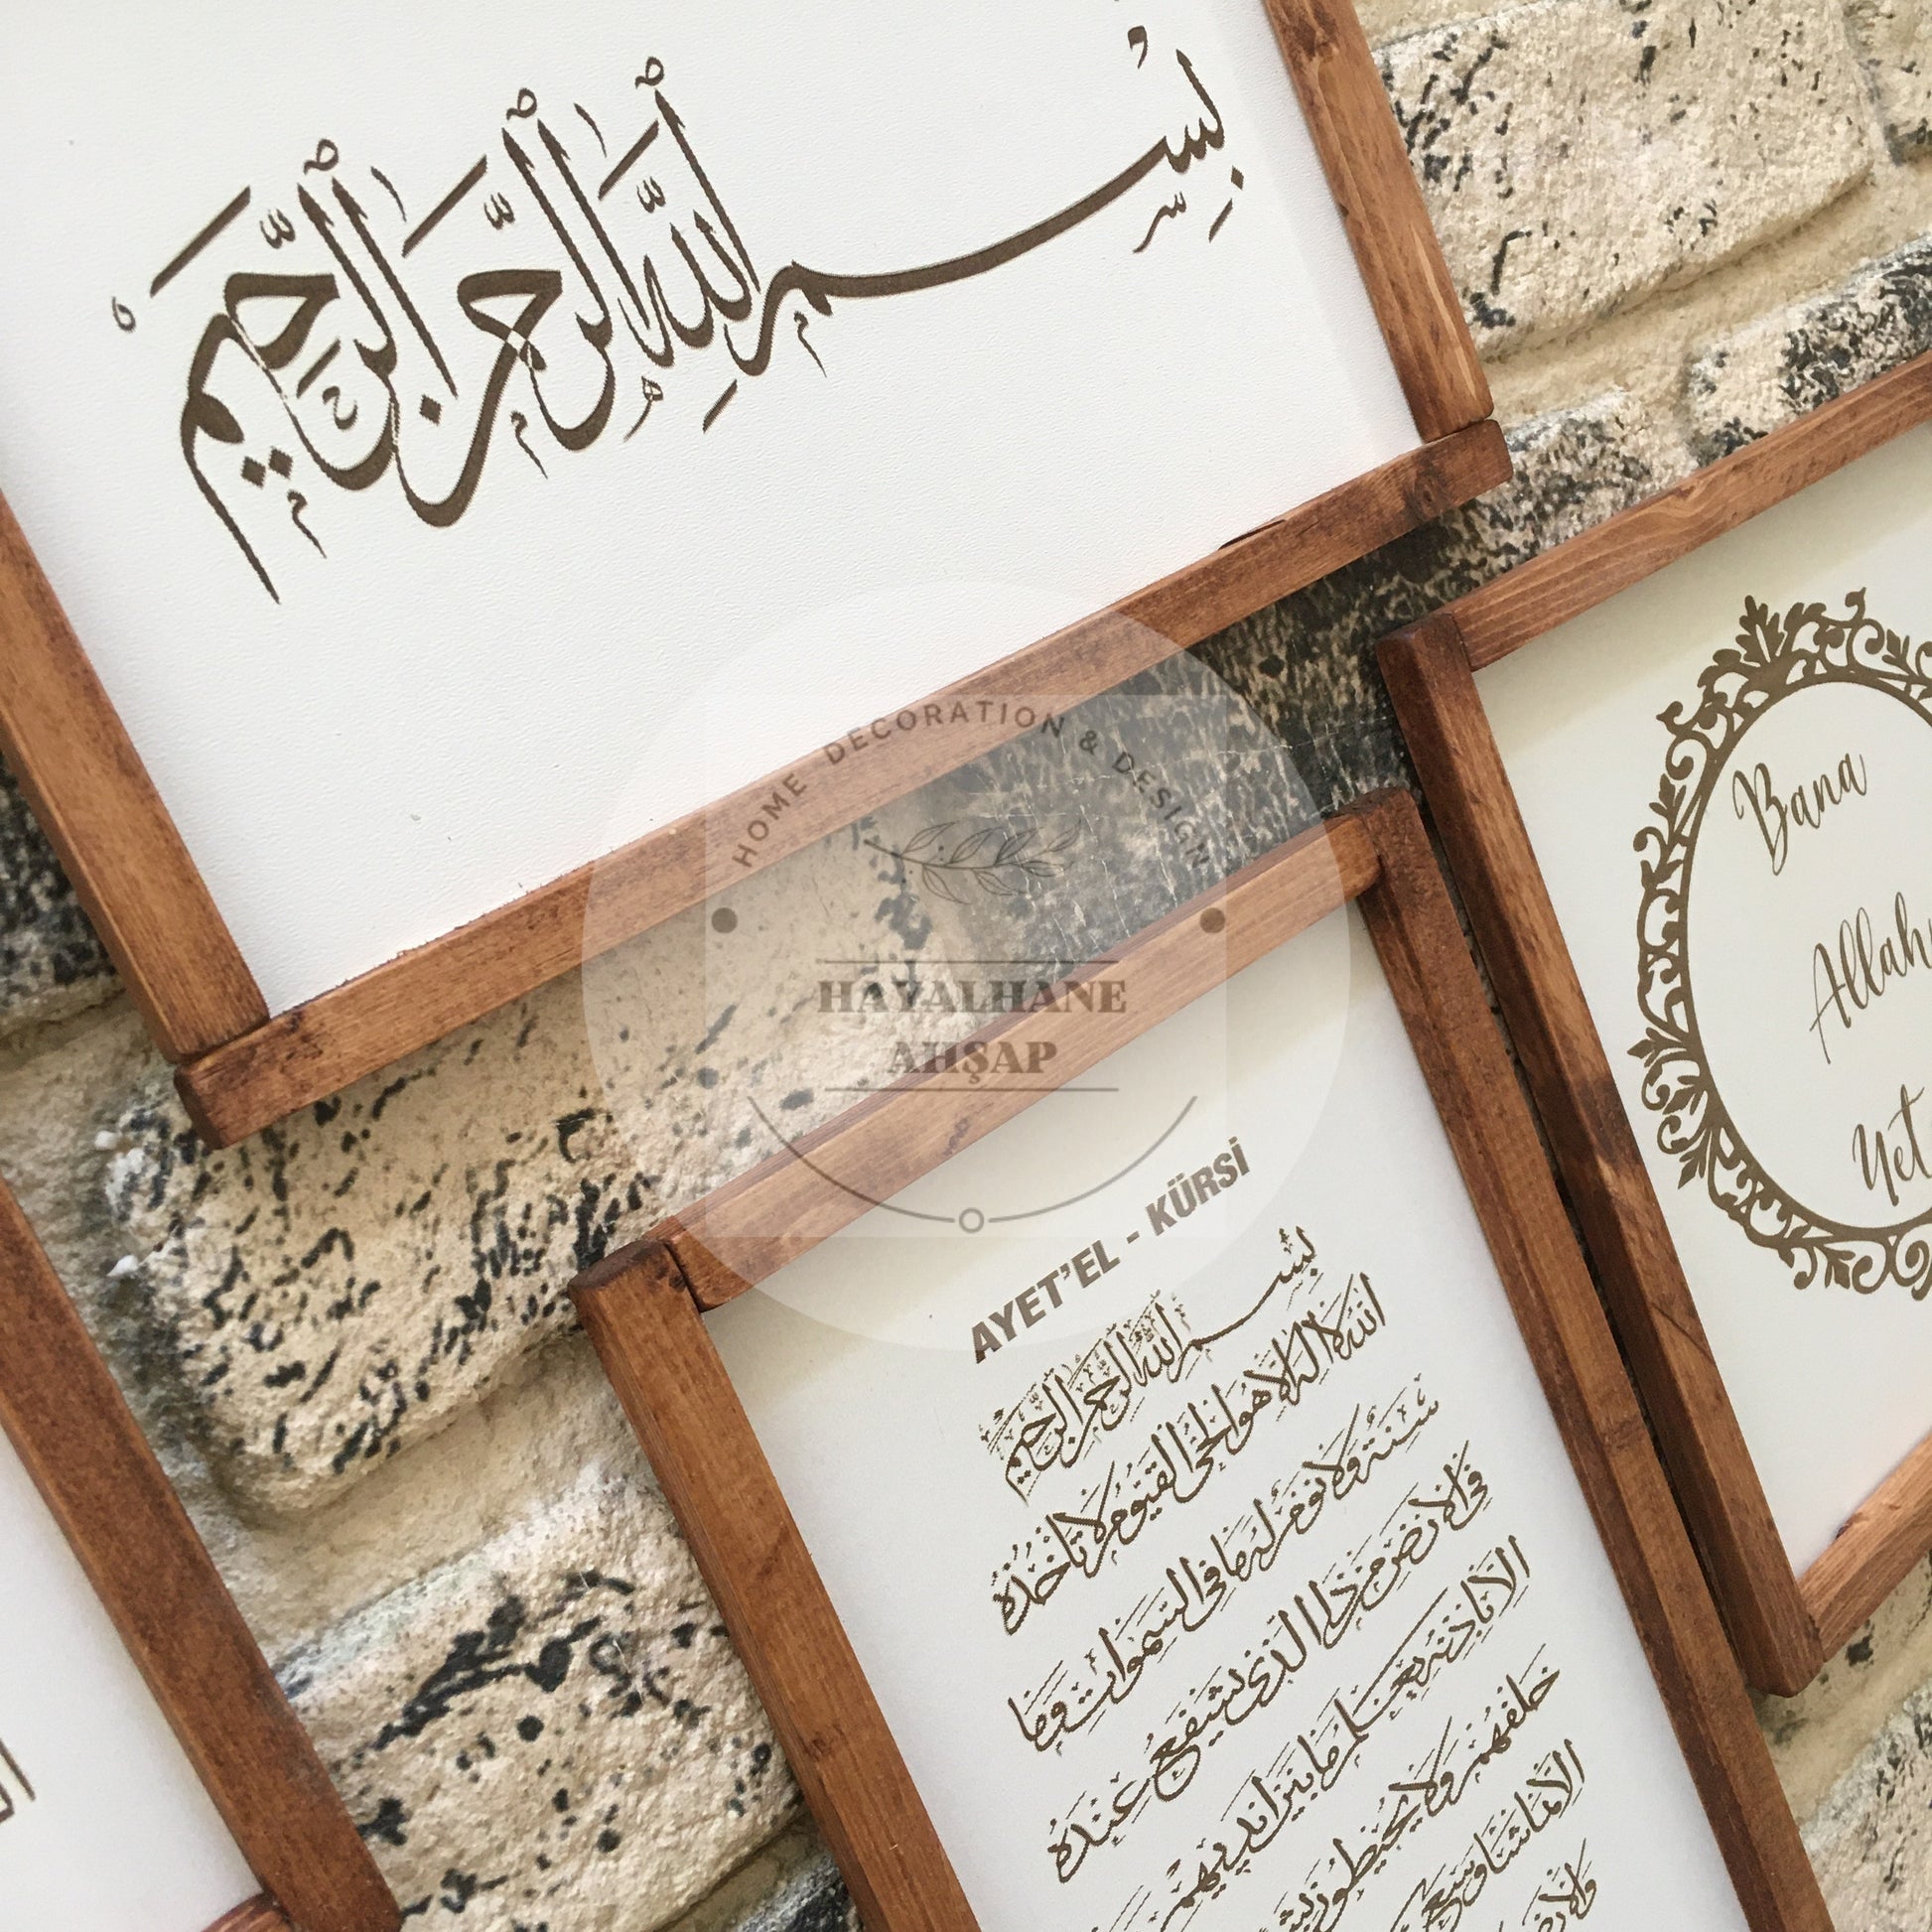 بِسْمِ ٱللَّهِ ٱلرَّحْمَٰنِ ٱلرَّحِيمِ
HOME DECORATION & DESIGN
HAYALHANE
AHŞAP
Bana
Allah
Yet
AYET'EL - KÜRSİ
بِسْمِ اللّٰهِ الرَّحْمٰنِ الرَّحِيمِ
اَللّٰهُ لَا اِلٰهَ اِلَّا هُوَ الْحَيُّ الْقَيُّومُ لَا تَأْخُذُهُ
سِنَةٌ وَلَا نَوْمٌ لَهُ مَا فِي السَّمٰوَاتِ وَمَا
فِي الْاَرْضِ مَنْ ذَا الَّذِي يَشْفَعُ عِنْدَهُ
اِلَّا بِاِذْنِهِ يَعْلَمُ مَا بَيْنَ اَيْدِيهِمْ
خَلْفَهُمْ وَلَا يُحِيطُونَ بِشَ
اِلَّا بِمَا شَاءَ وَسِعَ